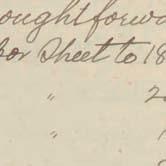 ought forwa
for Sheet to 18
" 2
"